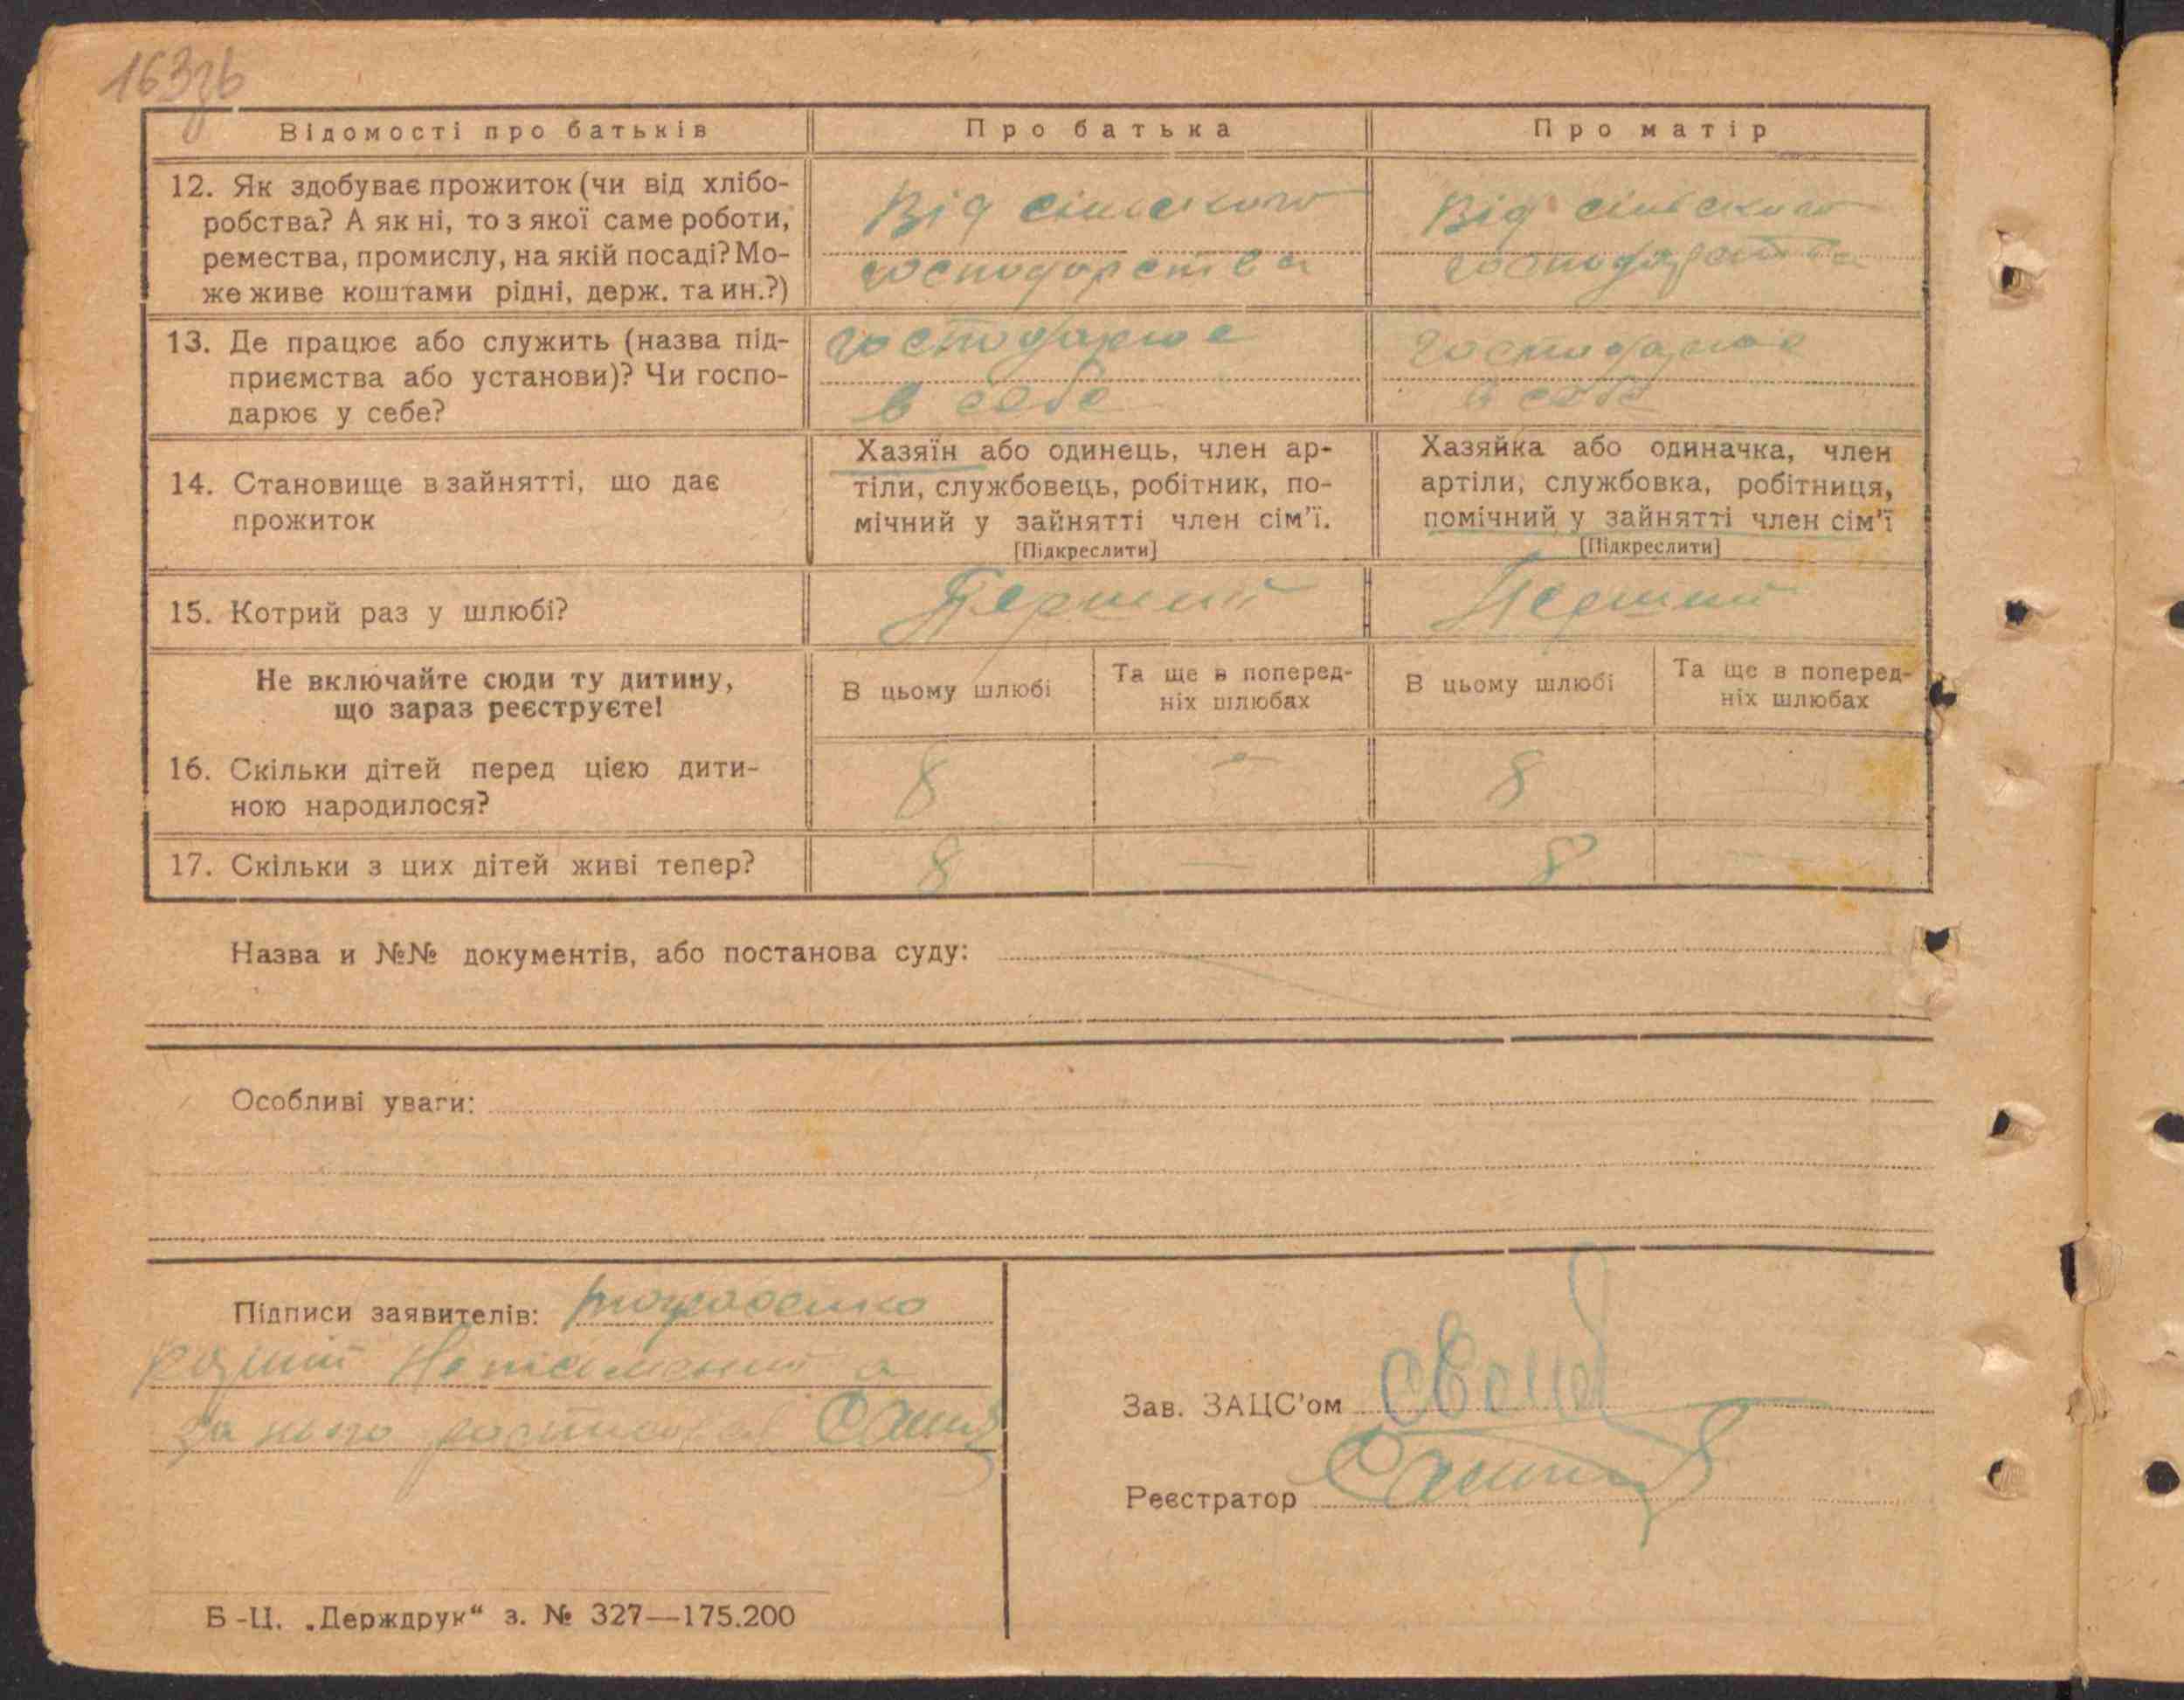 163зв
Відомості про батьків
Про батька
Про матір
12. Як здобуває прожиток (чи від хлібо-
робства? А як ні, то з якої саме роботи,
ремества, промислу, на якій посаді? Мо-
же живе коштами рідні, держ. та ин.?)
Від сільского
господарства
Від сільского
господарства
13. Де працює або служить (назва під-
приємства або установи)? Чи госпо-
дарює у себе?
господарює
в себе
господарює
в себе
14. Становище в зайнятті, що дає
прожиток
Хазяїн або одинець, член ар-
тіли, службовець, робітник, по-
мічний у зайнятті член сім'ї.
[Підкреслити]
Хазяйка або одиначка, член
артіли, службовка, робітниця,
помічний у зайнятті член сім'ї
[Підкреслити]
15. Котрий раз у шлюбі?
Перший
Перший
Не включайте сюди ту дитину,
що зараз реєструєте!
В цьому шлюбі
Та ще в поперед-
ніх шлюбах
В цьому шлюбі
Та ще в поперед-
ніх шлюбах
16. Скільки дітей перед цією дити-
ною народилося?
8
–
8
17. Скільки з цих дітей живі тепер?
8
—
8
Назва и №№ документів, або постанова суду:
Особливі уваги:
Підписи заявителів:
а
за його
Зав. ЗАЦС'ом
Реєстратор
Б-Ц. „Держдрук“ з. № 327—175.200